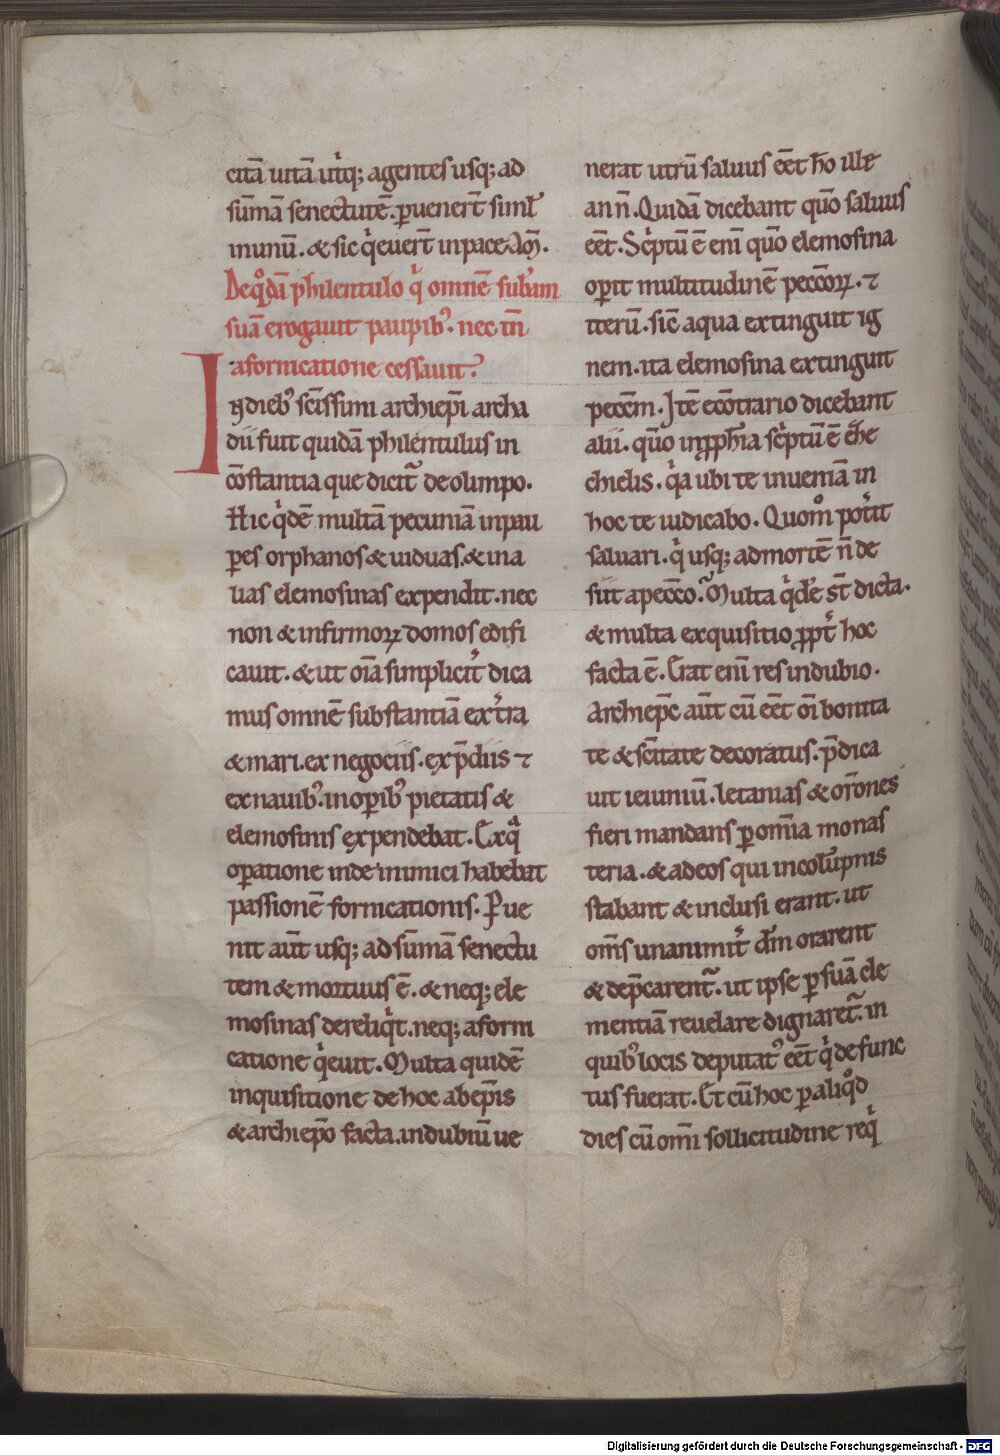 citā uitā utiq; agentes usq; ad
sūmā senectutē. puenert̄ siml'
munū. & sic q̇euert̄ in pace. Am̄.
De qᵒdā philentulo qͥ omnē subam
suā erogauit paupibꝰ. nec tn̄
a fornicatione cessauit.
In diebꝰ scīssimi archiepī archa
dii fuit quidā philentulus in
cōstantia que dicit᷑ de olimpo.
Hic qͥdē multā pecuniā in pau
pes orphanos & uiduas. & in a
lias elemosinas expendit. nec
non & infirmoꝝ domos edifi
cauit. & ut oīa simplicit᷑ dica
mus omnē substantiā ex tra
& mari. ex negociis. ex p̄diis ⁊
ex nauibꝰ. in opibꝰ pietatis &
elemosinis expendebat. Ex qᵃ
opatione inde inimici habebat
passionē fornicationis. Pue
nit aūt usq; ad sūmā senectu
tem & mortuus ē. & neq; ele
mosinas dereliqͥt. neq; a forni
catione q̇euit. Multa quidē
inquisitione de hoc ab epīs
& archiepō facta. in dubiū ue
nerat utrū saluus eēt hō ille
an n̄. Quidā dicebant quō saluus
eēt. Scͥptū ē eni quō elemosina
opit multitudinē peccōꝝ. ⁊
iterū. sic̄ aqua extinguit ig
nem. ita elemosina extinguit
peccm̄. Itē ecōtrario dicebant
alii. quō in ꝓph̄ia scͥptū ē
chielis. qͣa ubi te inueniā in
hoc te iudicabo. Quomᵒ potͥit
saluari. qͥ usq; ad mortē n̄ de
siit a peccō. Multa qͥdē st̄ dicta.
& multa exquisitio ꝓpt᷑ hoc
facta ē. Erat eni res in dubio.
Archiepc̄ aūt cū eēt oī bonita
te & scītate decoratus. p̄dica
uit ieiuniū. letanias & orōnes
fieri mandans p omīa monas
teria. & ad eos qui in colūpnis
stabant & inclusi erant. ut
om̄s unanimit᷑ dm̄ orarent
& dep̄carent᷑. ut ipse p suā cle
mentiā reuelare dignaret᷑. in
quibꝰ locis deputatꝰ eēt qͥ defunc
tus fuerat. Et cū hoc p aliqᵒd
dies cū omī sollicitudine reqͥ
Digitalisierung gefördert durch die Deutsche Forschungsgemeinschaft - DFG